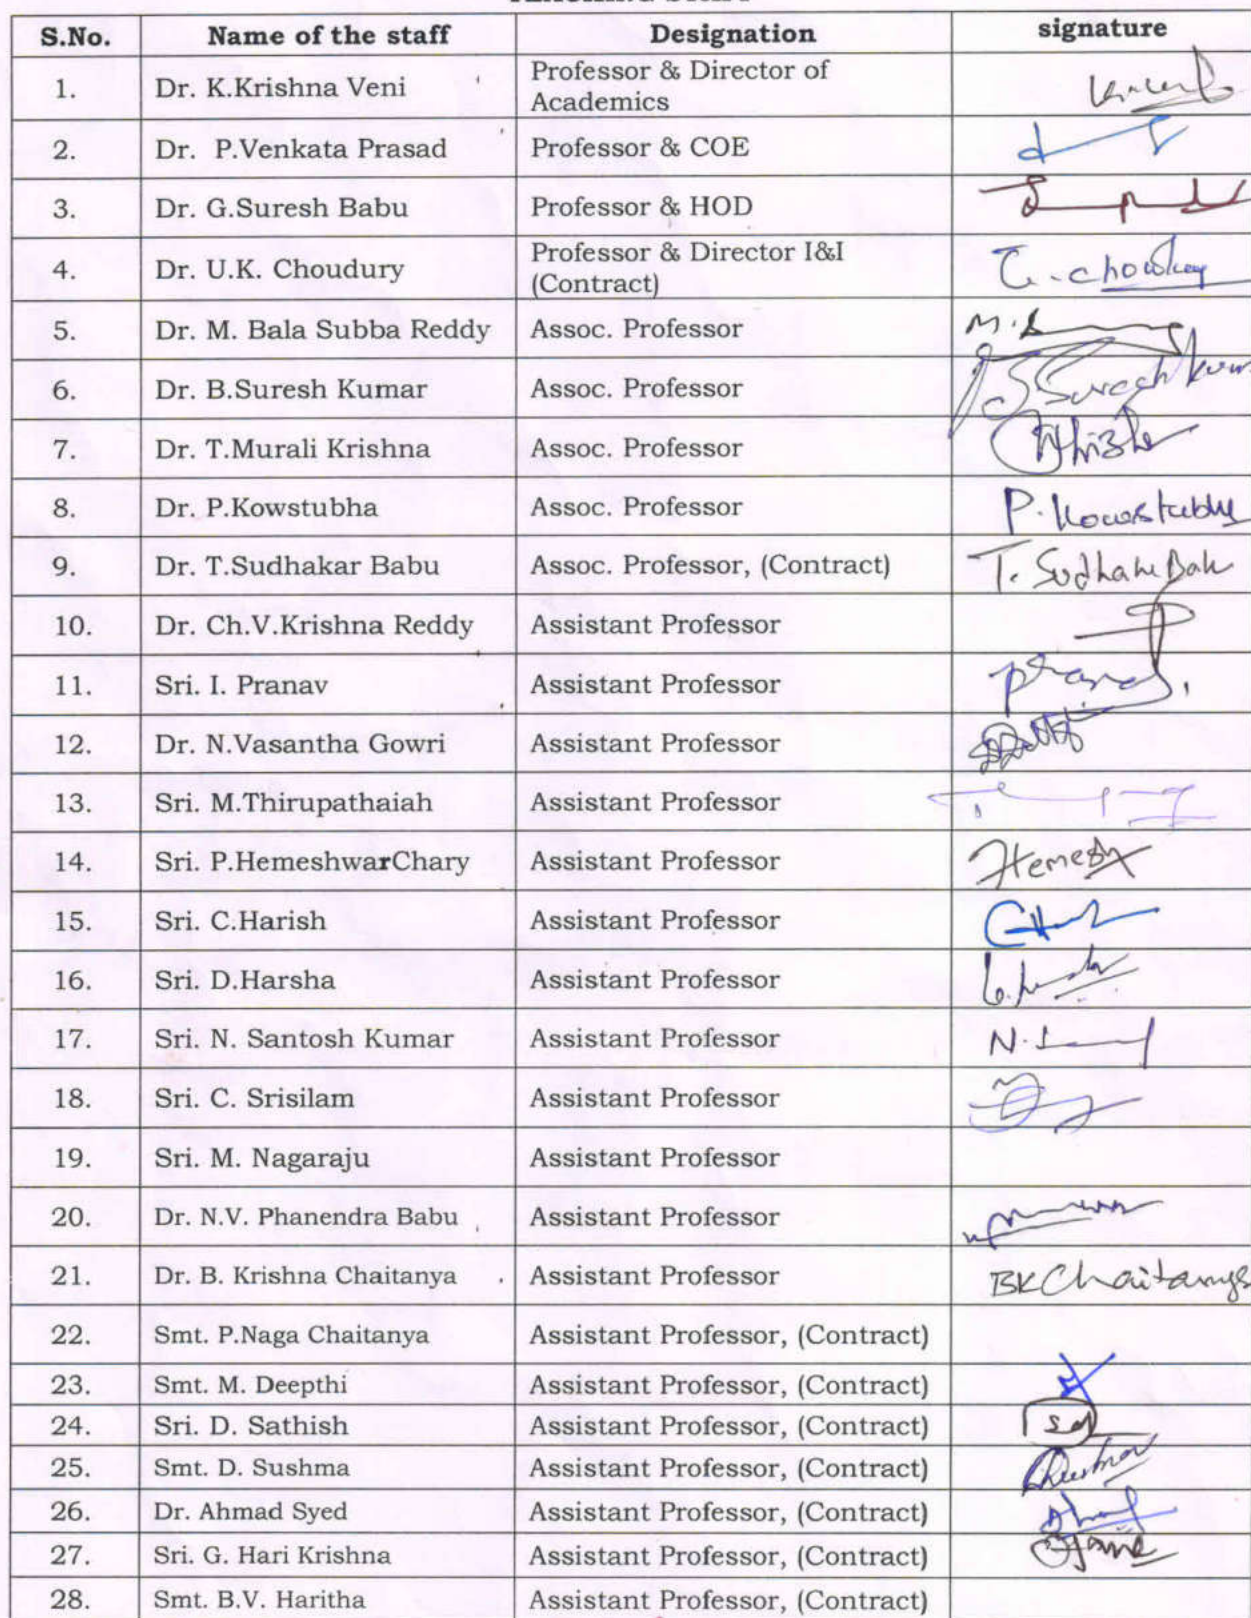 S.No. Name of the staff Designation signature
1. Dr. K.Krishna Veni Professor & Director of
Academics
2. Dr. P.Venkata Prasad Professor & COE
3. Dr. G.Suresh Babu Professor & HOD
4. Dr. U.K. Choudury Professor & Director I&I
(Contract)
5. Dr. M. Bala Subba Reddy Assoc. Professor
6. Dr. B.Suresh Kumar Assoc. Professor
7. Dr. T.Murali Krishna Assoc. Professor
8. Dr. P.Kowstubha Assoc. Professor
9. Dr. T.Sudhakar Babu Assoc. Professor, (Contract)
10. Dr. Ch.V.Krishna Reddy Assistant Professor
11. Sri. I. Pranav Assistant Professor
12. Dr. N.Vasantha Gowri Assistant Professor
13. Sri. M.Thirupathaiah Assistant Professor
14. Sri. P.HemeshwarChary Assistant Professor Hemesh
15. Sri. C.Harish Assistant Professor
16. Sri. D.Harsha Assistant Professor
17. Sri. N. Santosh Kumar Assistant Professor
18. Sri. C. Srisilam Assistant Professor
19. Sri. M. Nagaraju Assistant Professor
20. Dr. N.V. Phanendra Babu Assistant Professor
21. Dr. B. Krishna Chaitanya Assistant Professor BKChaitanya
22. Smt. P.Naga Chaitanya Assistant Professor, (Contract)
23. Smt. M. Deepthi Assistant Professor, (Contract)
24. Sri. D. Sathish Assistant Professor, (Contract)
25. Smt. D. Sushma Assistant Professor, (Contract)
26. Dr. Ahmad Syed Assistant Professor, (Contract)
27. Sri. G. Hari Krishna Assistant Professor, (Contract)
28. Smt. B.V. Haritha Assistant Professor, (Contract)